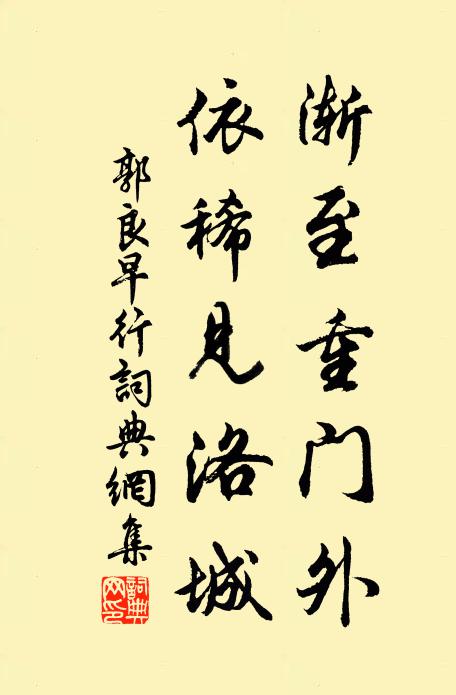 渐至重门外
依稀见洛城
郭良早行詞典網集
詞典網印